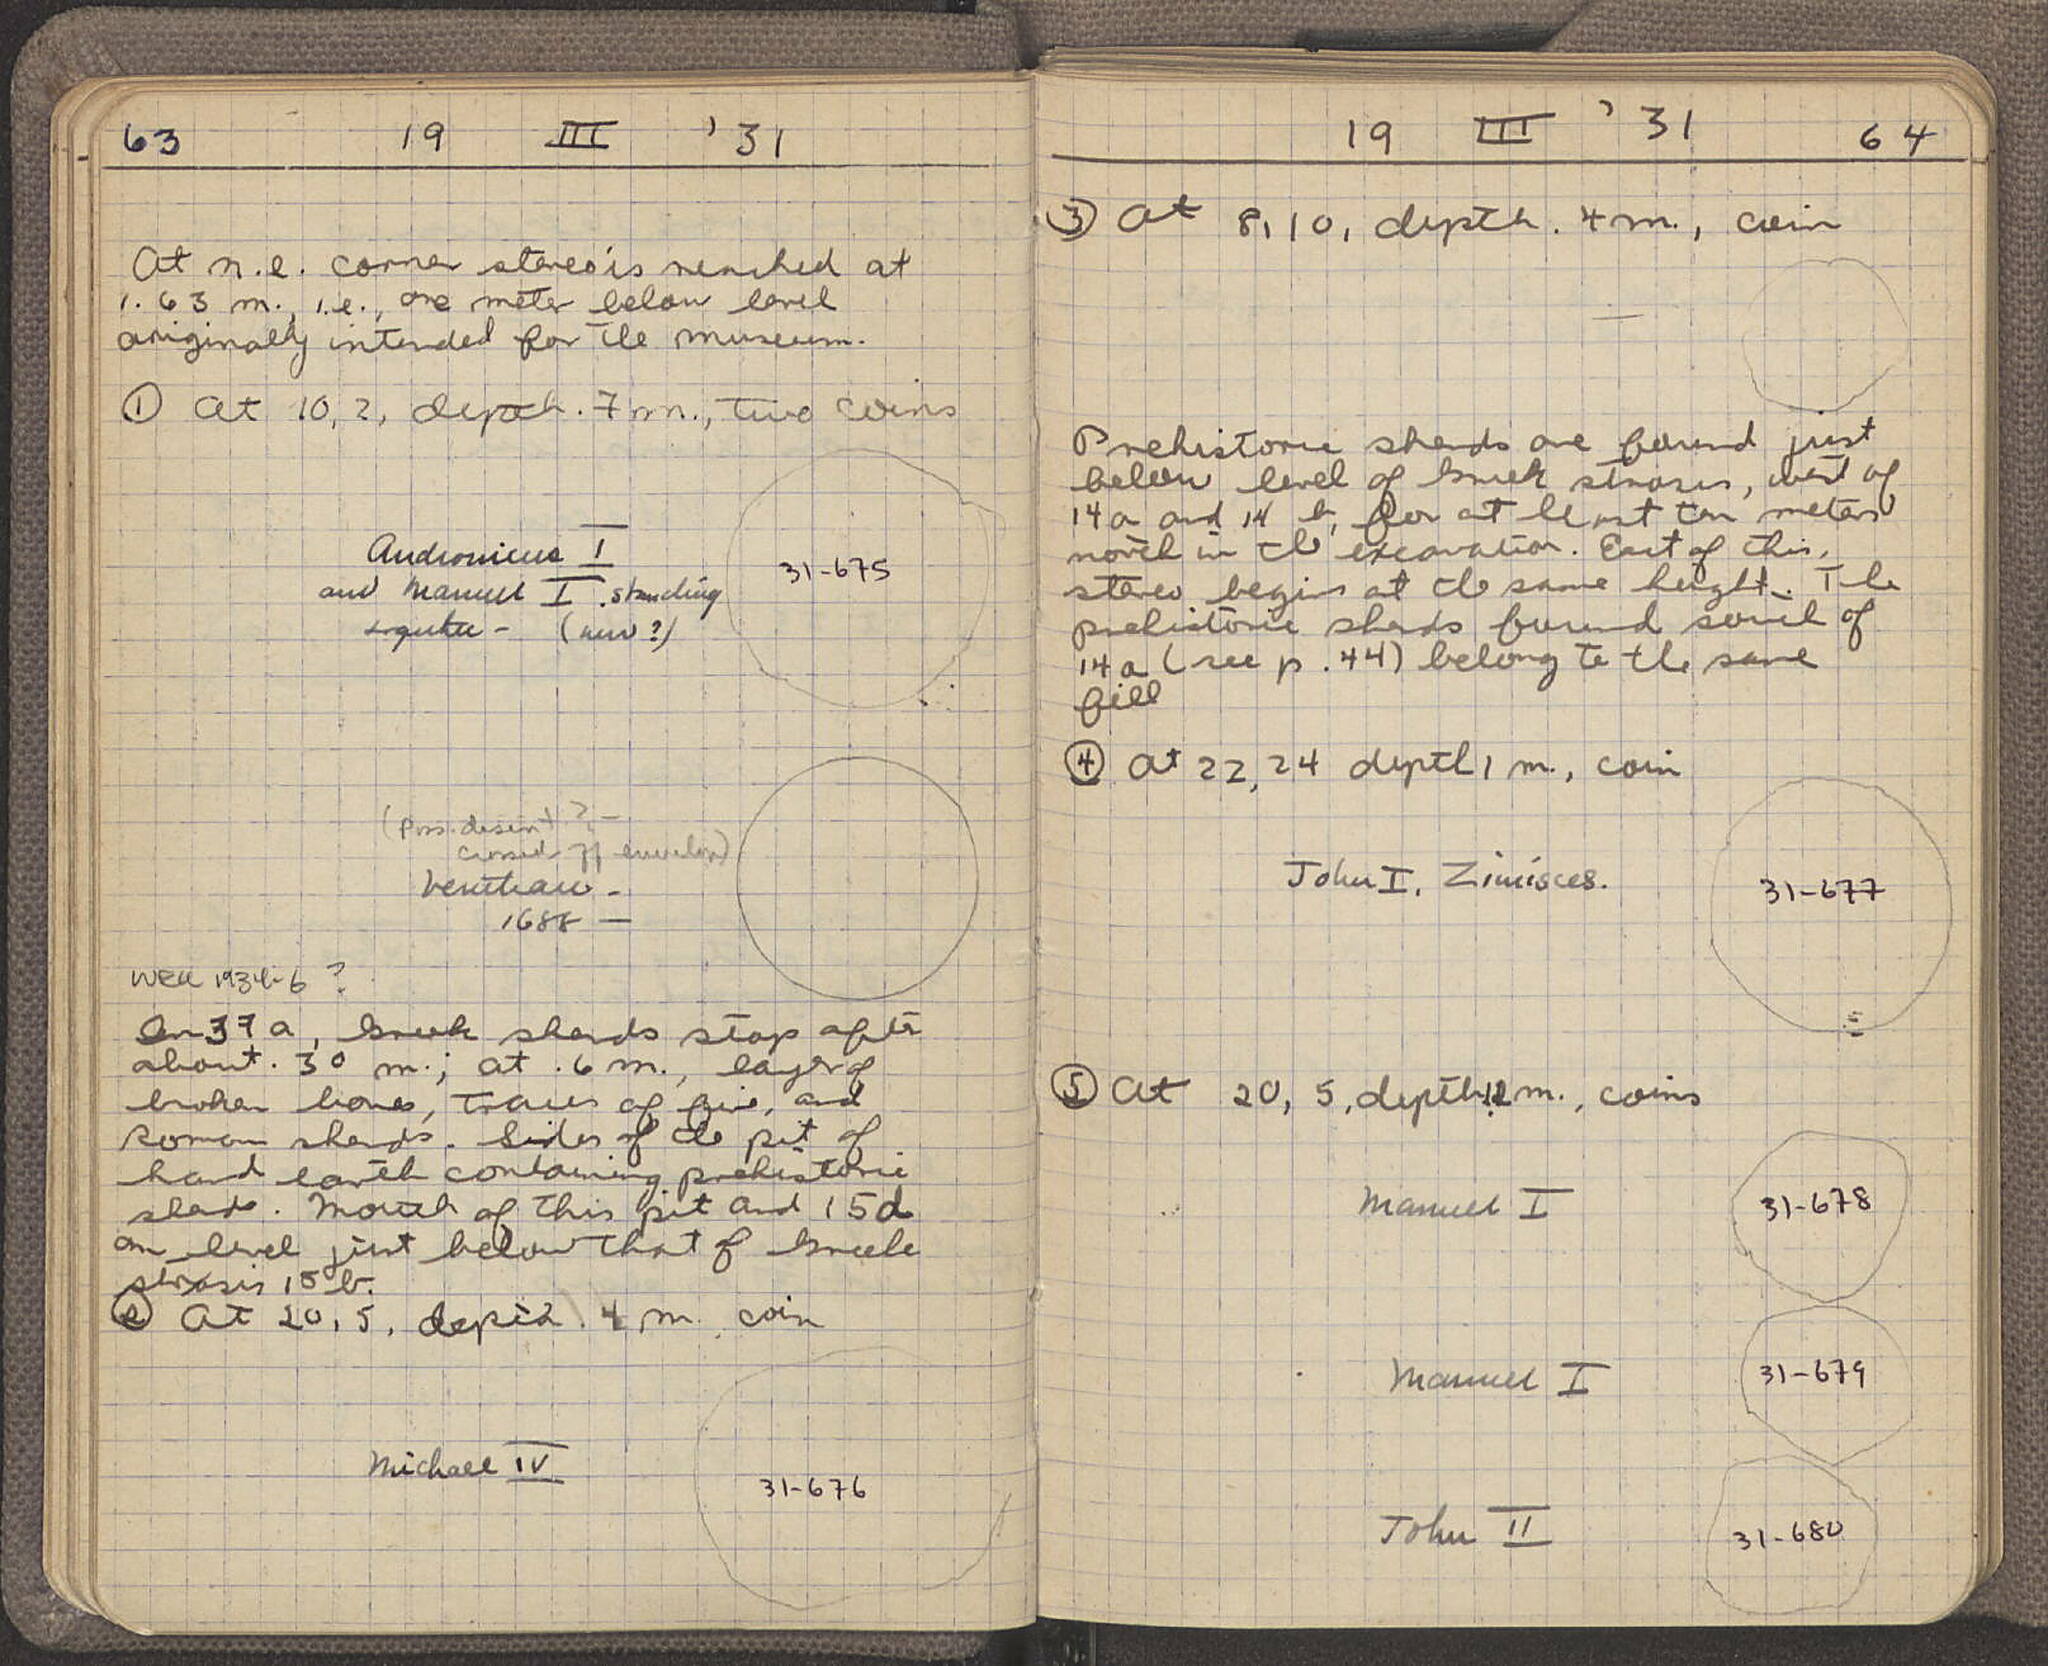 63 19 III '31
At n.e. corner stereo is reached at
1.63 m., i.e., one meter below level
originally intended for the museum.
① At 10, 2, depth .7 m., two coins
Andronicus I
and Manuel I. standing
together - (new?)
31-675
(Poss. desent ? -
crossed off envelope)
Venetian -
1688 -
Well 1934-6 ?
In 37 a, Greek sherds stop after
about .30 m.; at .6 m., layer of
broken bones, traces of fire, and
Roman sherds. Sides of the pit of
hard earth containing prehistoric
sherds. Mouth of this pit and 15d
on level just below that of Greek
strosis 15 b.
② At 20, 5, depth .4 m. coin
Michael IV
31-676
19 III '31 64
③ At 8, 10, depth .4 m., coin
Prehistoric sherds are found just
below level of Greek strosis, west of
14a and 14 b, for at least ten meters
north in the excavation. East of this,
stereo begins at the same height. The
prehistoric sherds found south of
14a (see p. 44) belong to the same
fill
④ At 22, 24 depth 1 m., coin
John I. Zimisces.
31-677
⑤ At 20, 5, depth m., coins
Manuel I
31-678
Manuel I
31-679
John II
31-680